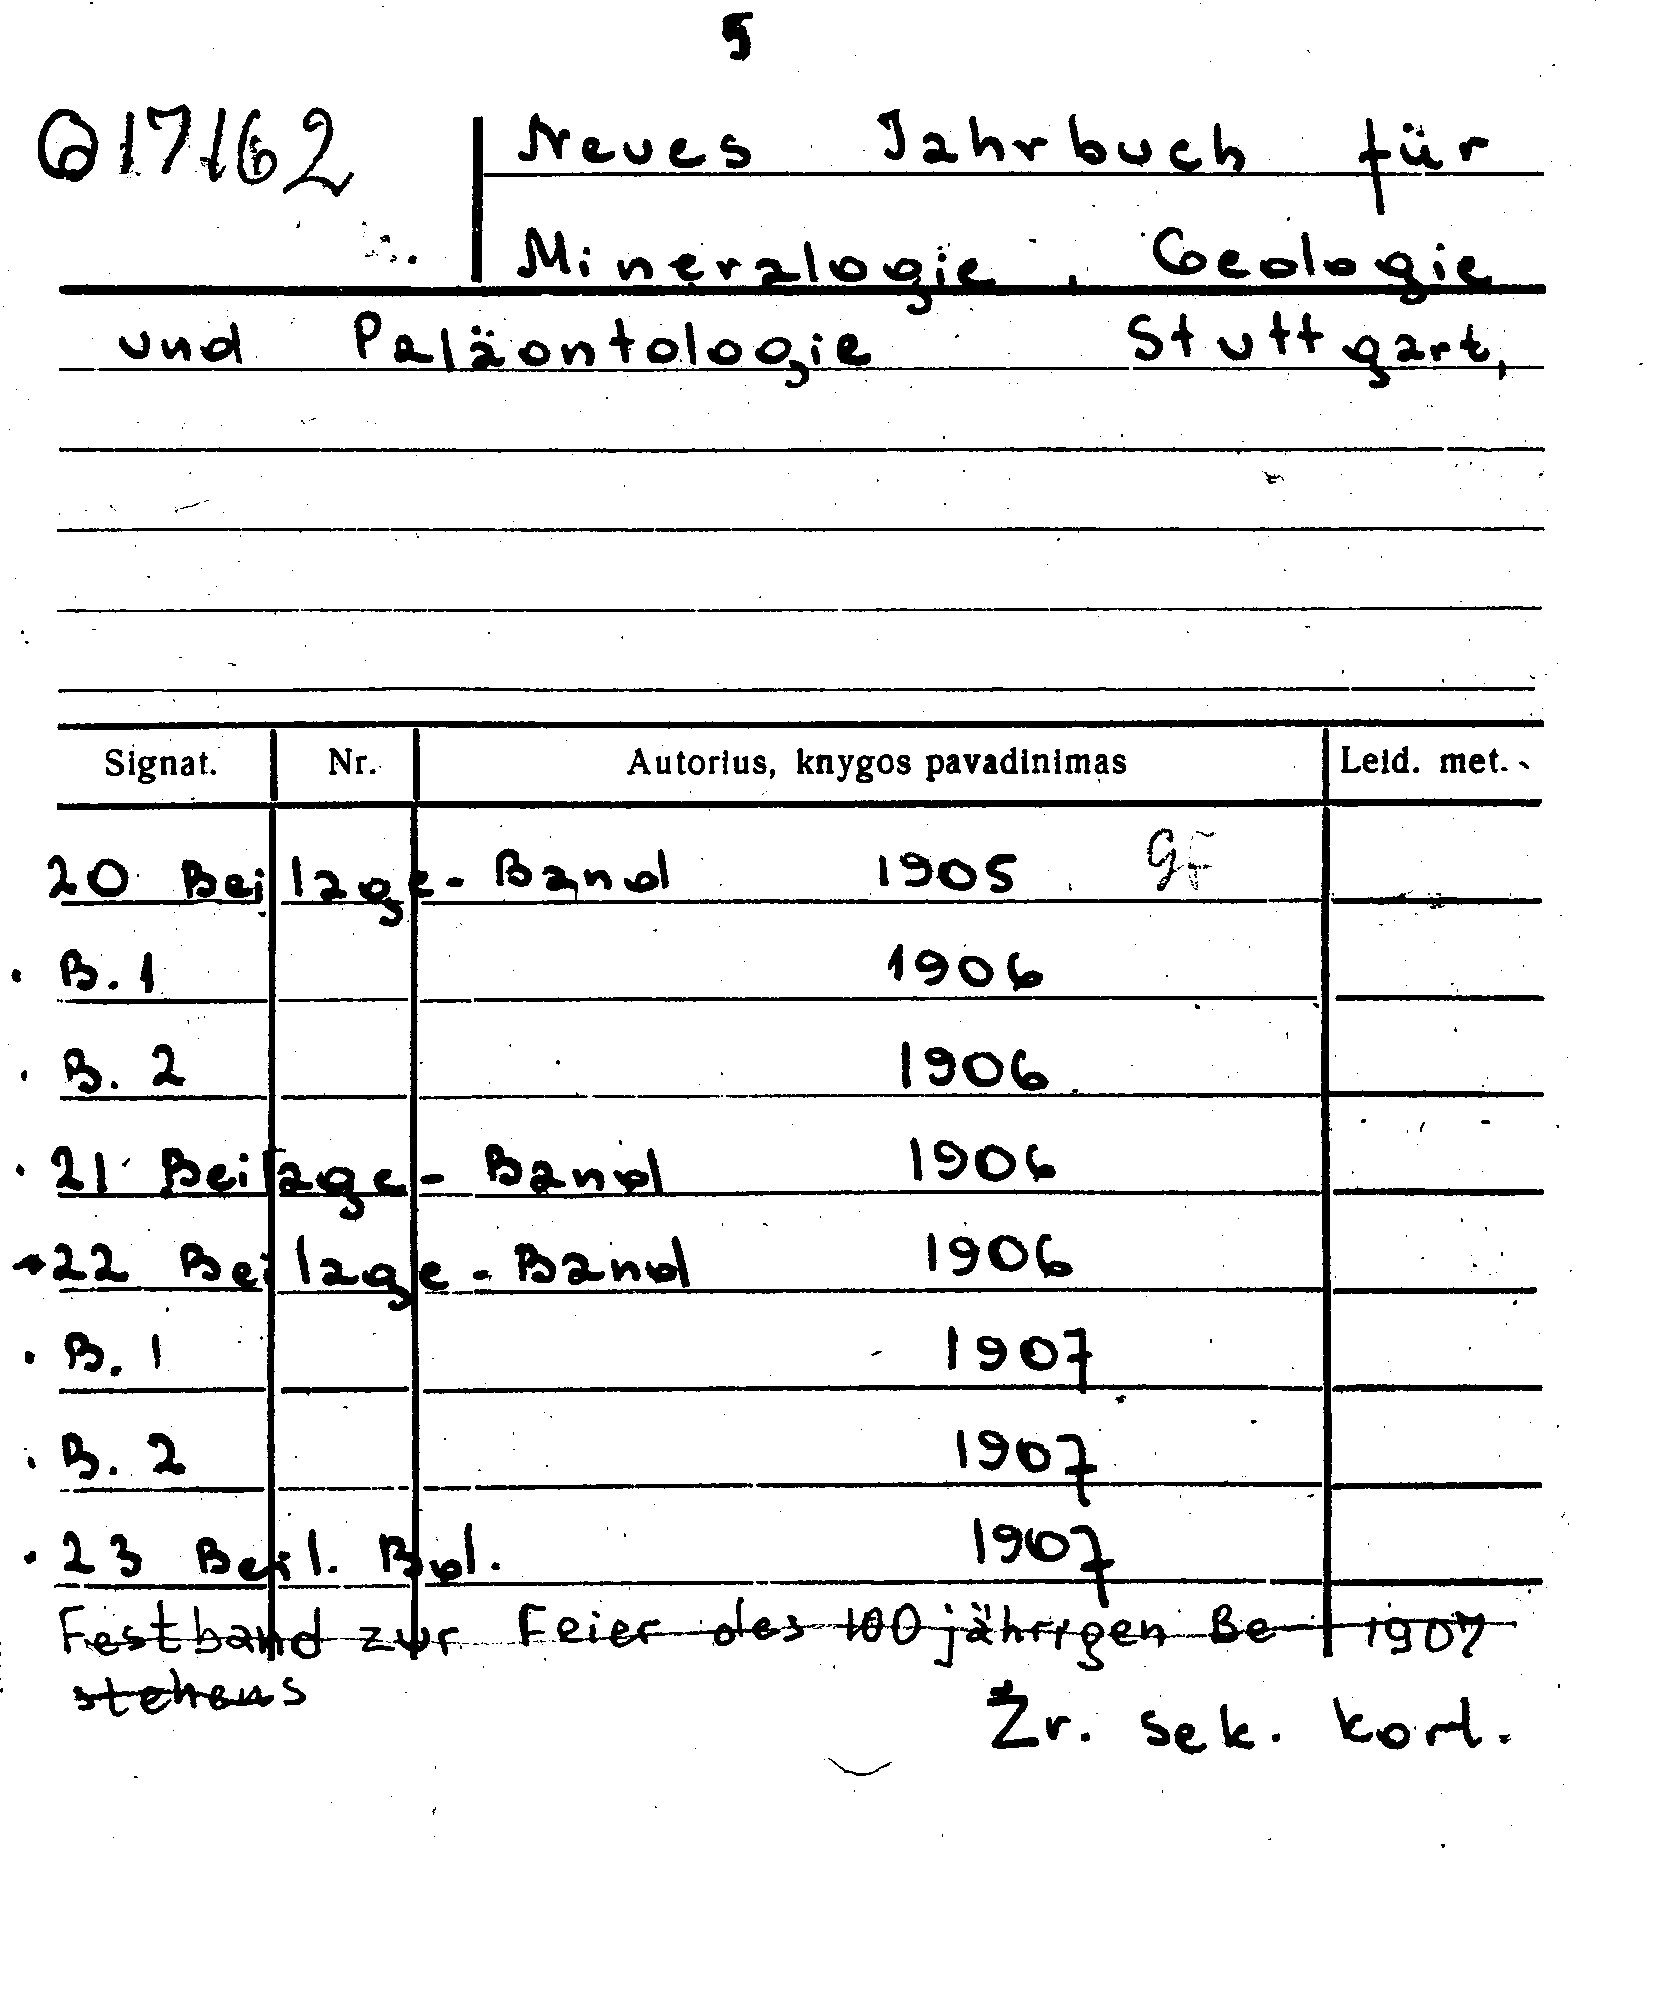 5
Q17162 Neues Jahrbuch für
Mineralogie, Geologie
und Paläontologie Stuttgart,
Signat. Nr. Autorius, knygos pavadinimas Leid. met.
20 Beilage-Band 1905 gF
B. 1 1906
B. 2 1906
21 Beilage-Band 1906
22 Beilage-Band 1906
B. 1 1907
B. 2 1907
23 Beil. Bd. 1907
Festband zur Feier des 100 jährigen Be 1907
stehens
Žr. sek. kort.